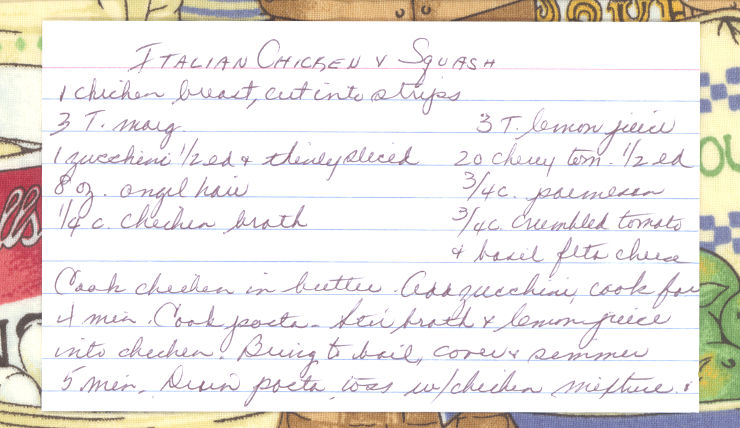 Italian Chicken & Squash
1 chicken breast, cut into strips
3 T. marg. 3 T. lemon juice
1 zucchini 1/2 ed & thinly sliced 20 cherry tom. 1/2 ed
8 oz. angel hair 3/4 c. parmesan
1/4 c. chicken broth 3/4 c. crumbled tomato
& basil feta cheese
Cook chicken in butter. Add zucchini, cook for
4 min. Cook pasta. Stir broth & lemon juice
into chicken. Bring to boil, cover & simmer
5 min. Drain pasta, toss w/chicken mixture.